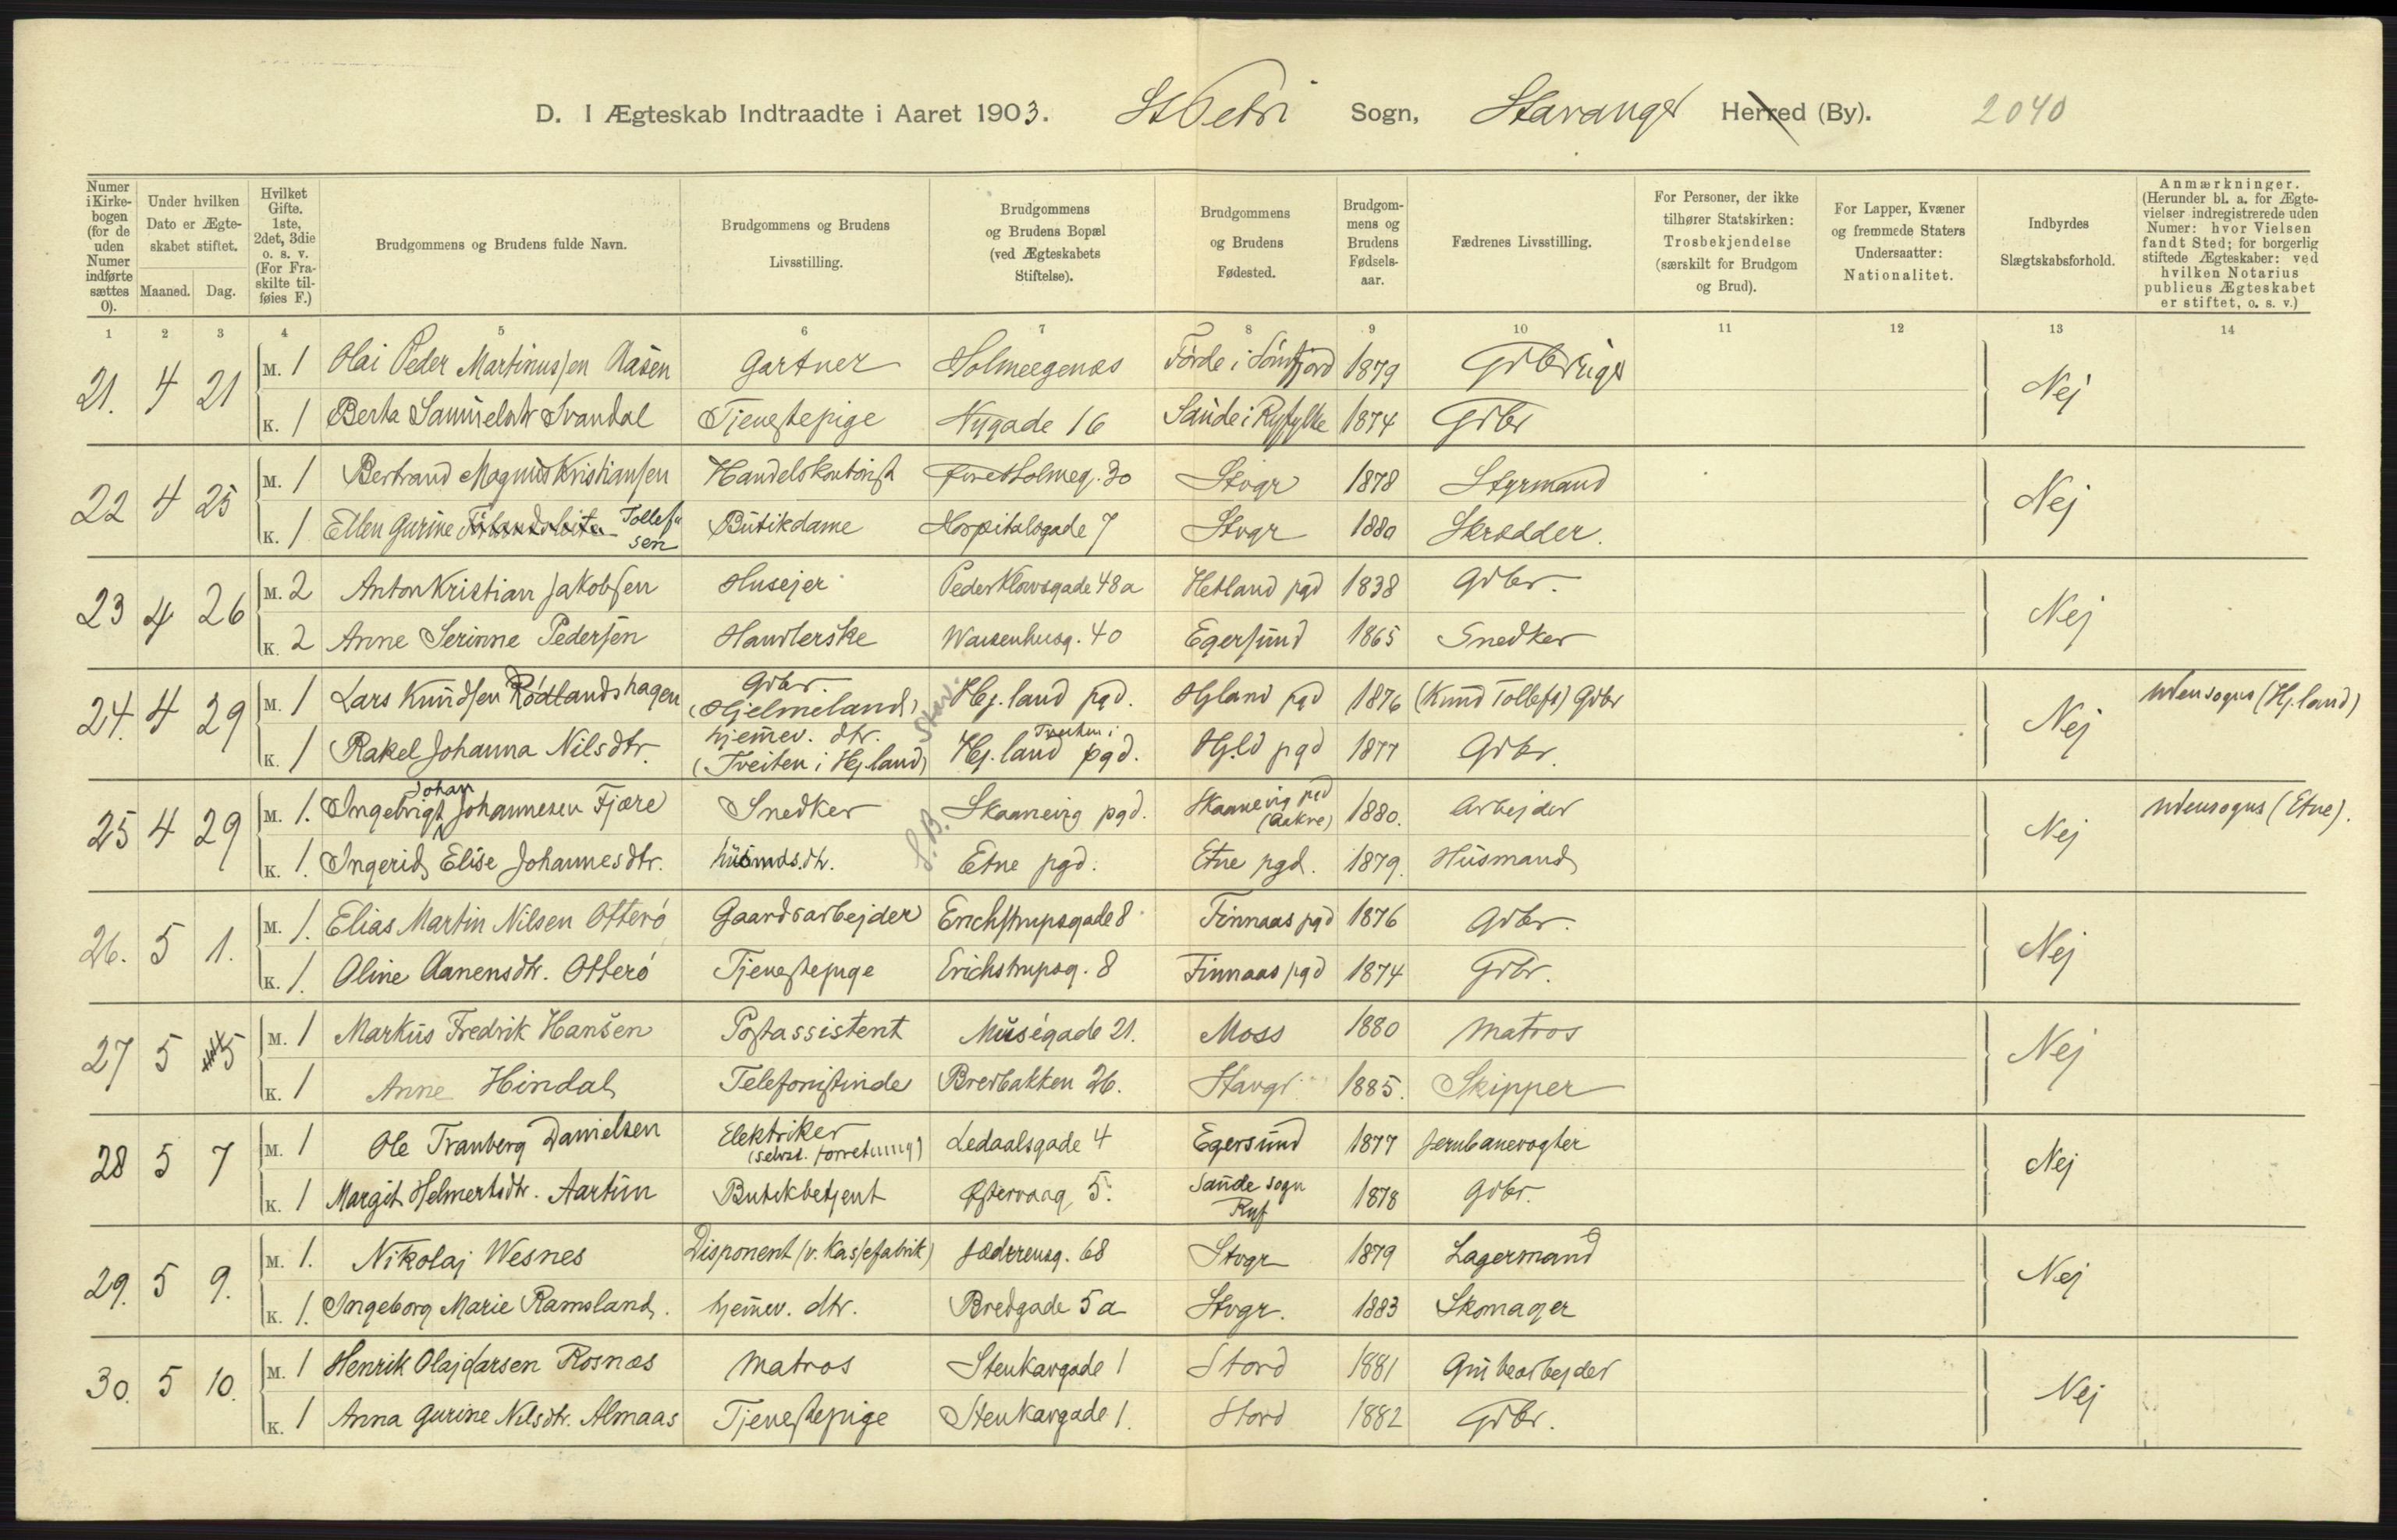 D. I Ægteskab Indtraadte i Aaret 1903. St Petri Sogn, Stavanger Herred (By). 2040
Numer i Kirkebogen (for de uden Numer indførte sættes 0).
Under hvilken Dato er Ægteskabet stiftet.
Maaned. Dag.
Hvilket Gifte. 1ste, 2det, 3die o. s. v. (For Fraskilte tilføies F.)
Brudgommens og Brudens fulde Navn.
Brudgommens og Brudens Livsstilling.
Brudgommens og Brudens Bopæl (ved Ægteskabets Stiftelse).
Brudgommens og Brudens Fødested.
Brudgommens og Brudens Fødselsaar.
Fædrenes Livsstilling.
For Personer, der ikke tilhører Statskirken: Trosbekjendelse (særskilt for Brudgom og Brud).
For Lapper, Kvæner og fremmede Staters Undersaatter: Nationalitet.
Indbyrdes Slægtskabsforhold.
Anmærkninger. (Herunder bl. a. for Ægtevielser indregistrerede uden Numer: hvor Vielsen fandt Sted; for borgerlig stiftede Ægteskaber: ved hvilken Notarius publicus Ægteskabet er stiftet, o. s. v.)
1 2 3 4 5 6 7 8 9 10 11 12 13 14
21. 4 21 M. 1 Olai Peder Martinussen Aasen Gartner Holmeegenæs Førde i Søndfjord 1879 Gdbruger Nej
K. 1 Berta Samuelsdtr Svandal Tjenestepige Nygade 16 Saude i Ryfylke 1874 Gdbr
22 4 25 M. 1 Bertrand Magnus Kristiansen Handelskontorist Øvre Holmeg. 30 Stvgr 1878 Styrmand Nej
K. 1 Ellen Gurine Tollefsen Butikdame Hospitalsgade 7 Stvgr 1880 Skrædder.
23 4 26 M. 2 Anton Kristian Jakobsen Husejer Peder Klowsgade 48a Hetland pgd 1838 Gdbr. Nej
K. 2 Anne Serinne Pedersen Handlerske Waisenhusg. 40 Egersund 1865 Snedker
24. 4 29 M. 1 Lars Knudsen Rødlandshagen Gdbr. (Hjelmeland) Hj.land pgd. Hjland pgd 1876 (Knud Tollefs) Gdbr Nej udensogns (Hj.land)
K. 1 Rakel Johanna Nilsdtr. hjemmev. dtr. (Tveiten i Hj.land) Tveiten i Hj.land pgd. Hjld pgd 1877 Gdbr.
Stav.
25 4 29 M. 1. Ingebrigt Johan Johannesen Fjære Snedker Skaanevig pgd. Skaanevig pgd (Aakre) 1880. Arbejder Nej udensogns (Etne).
S.B.
K. 1. Ingerid Elise Johannesdtr. husmds.dtr. Etne pgd. Etne pgd. 1879. Husmand
26. 5 1. M. 1. Elias Martin Nilsen Otterø Gaardsarbejder Erichstrupsgade 8 Finnaas pgd 1876 Gdbr. Nej
K. 1. Oline Aanensdtr. Otterø Tjenestepige Erichstrupsg. 8 Finnaas pgd 1874 Gdbr.
27 5 5 M. 1 Markus Fredrik Hansen Postassistent Muségade 21. Moss 1880 Matros Nej
K. 1 Anne Hindal Telefonistinde Bredbakken 26. Stavgr 1885. Skipper
28 5 7 M. 1 Ole Tranberg Danielsen Elektriker (selvst. forretning) Ledaalsgade 4 Egersund 1877 Jernbanevogter Nej
K. 1 Margit Helmertsdtr. Aartun Butikbetjent Østervaag 5. Saude sogn Ryf 1878 Gdbr.
29. 5 9. M. 1. Nikolaj Wesnes Disponent (v. Kassefabrik) Jædderensg. 68 Stvgr 1879 Lagermand Nej
K. 1. Ingeborg Marie Ramsland. hjemmev. dtr. Bredgade 5a Stvgr. 1883 Skomager
30. 5 10. M. 1 Henrik Olaj Larsen Rosnæs Matros Stenkargade 1 Stord 1881 Grubearbejder Nej
K. 1 Anna Gurine Nilsdtr. Almaas Tjenestepige Stenkargade 1. Stord 1882 Gdbr.